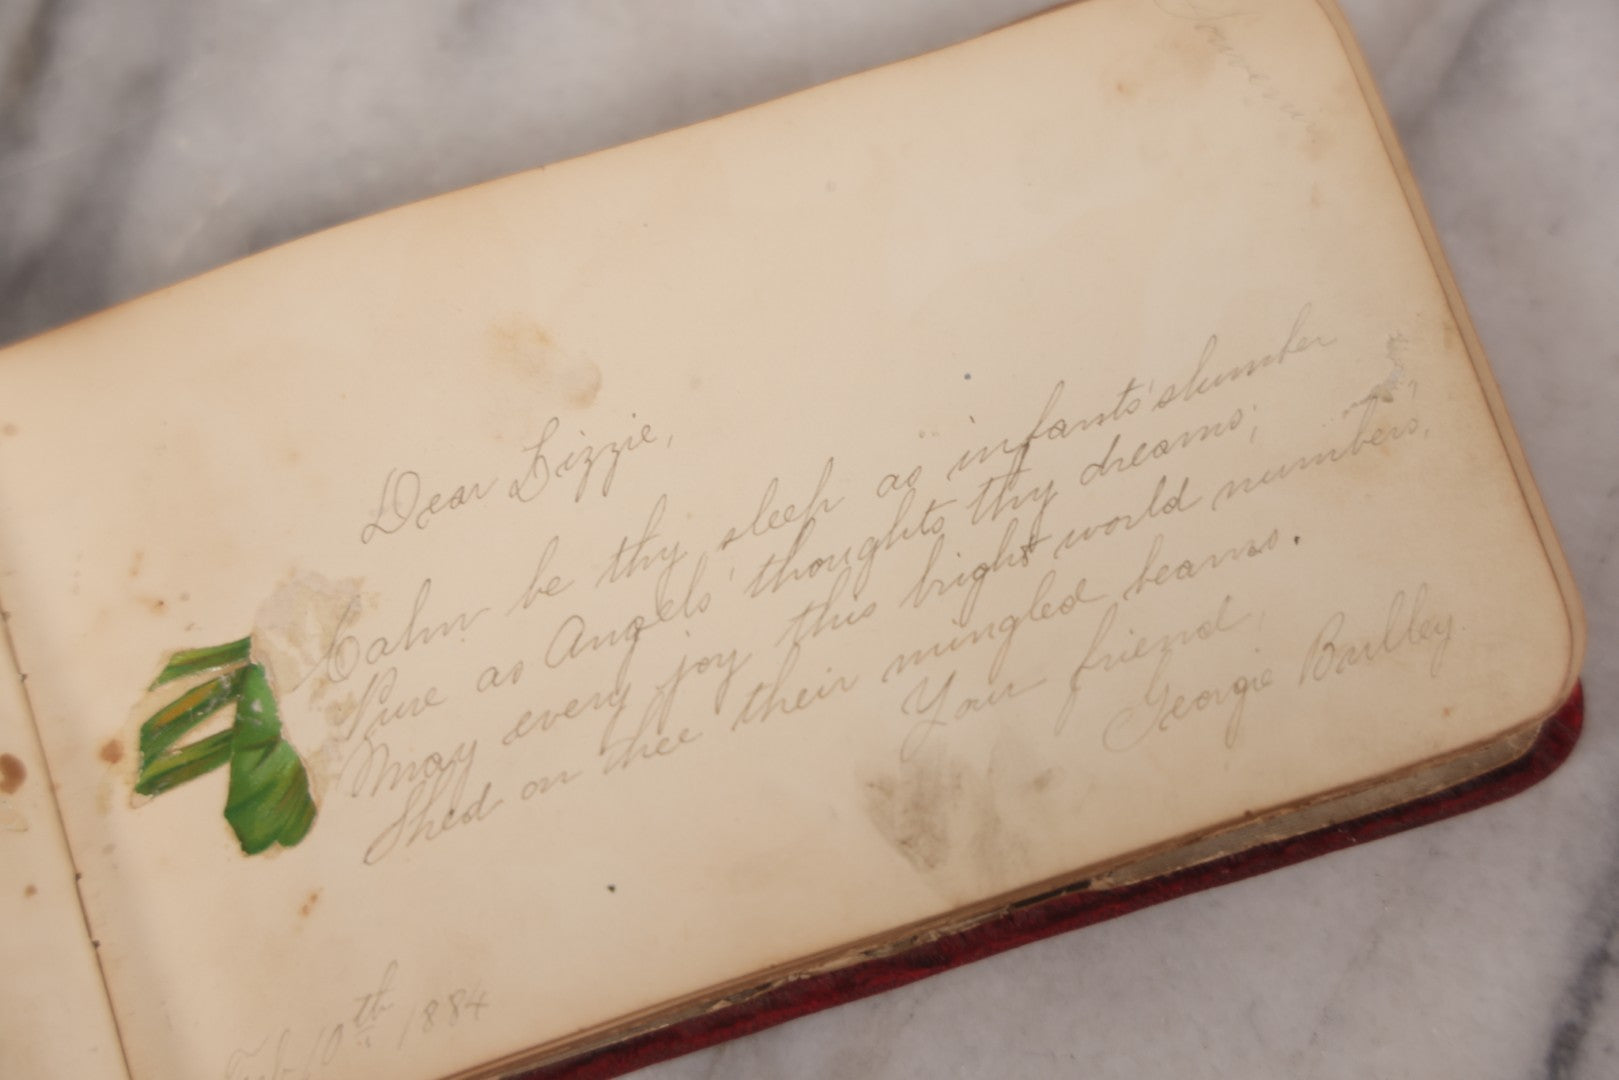 Souvenir
Dear Lizzie,
Calm be thy sleep as infants' slumber
Pure as Angels' thoughts thy dreams;
May every joy this bright world numbers,
Shed on thee their mingled beams.
Your friend,
Georgie Bulley.
Feb 10th 1884